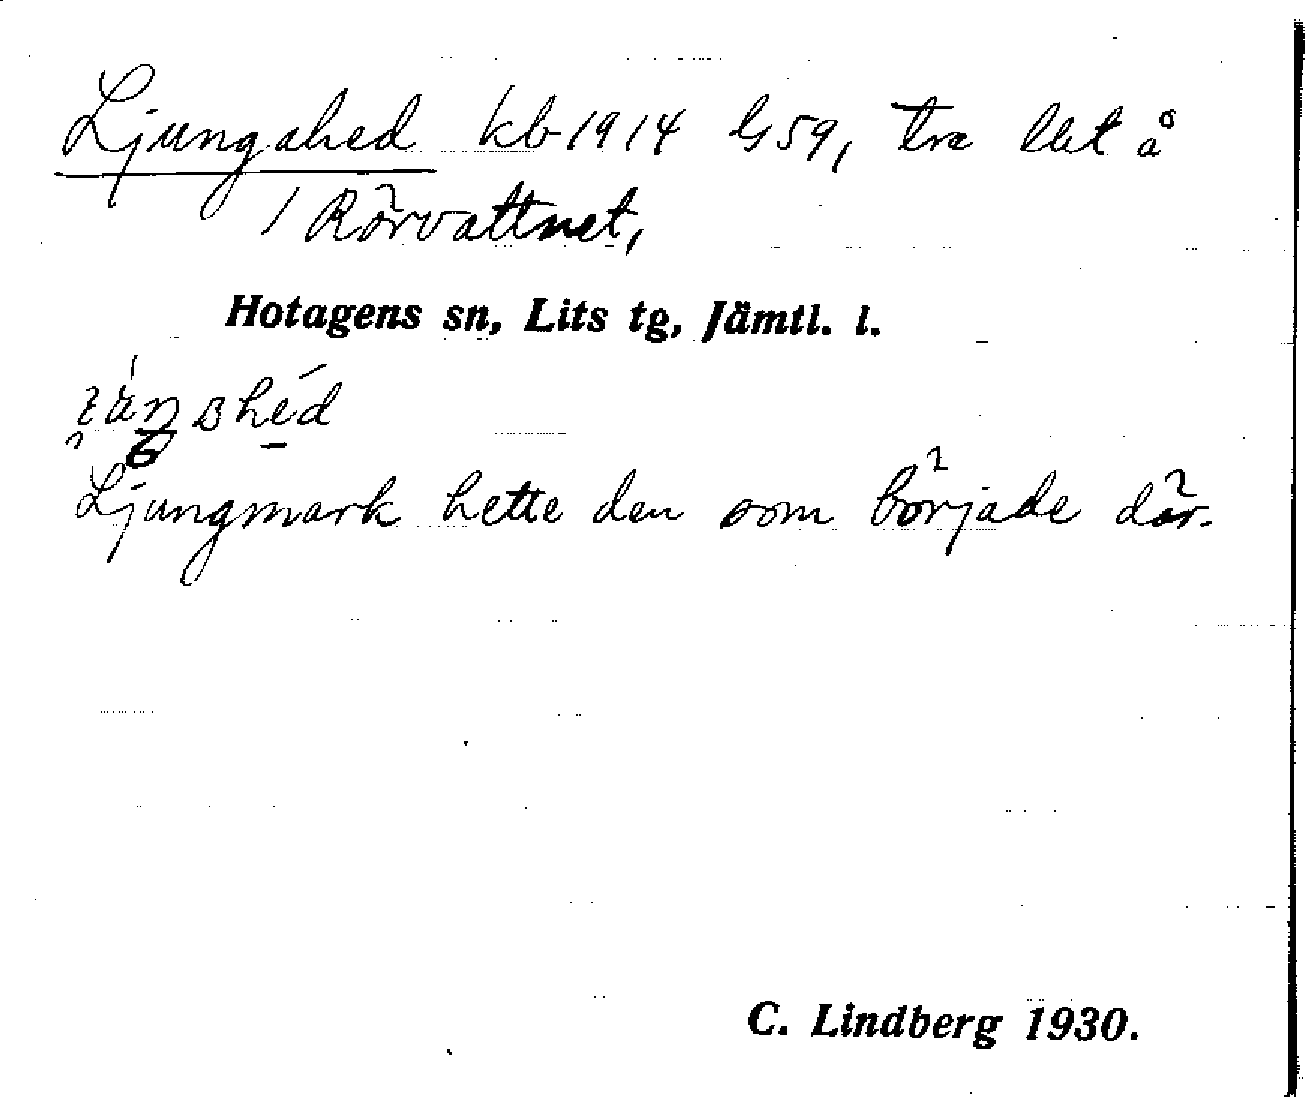 Ljungahed kb 1914 G59, tre lht å
/ Rörvattnet,
Hotagens sn, Lits tg, Jämtl. l.
Ljungmark hette den som började där.
C. Lindberg 1930.